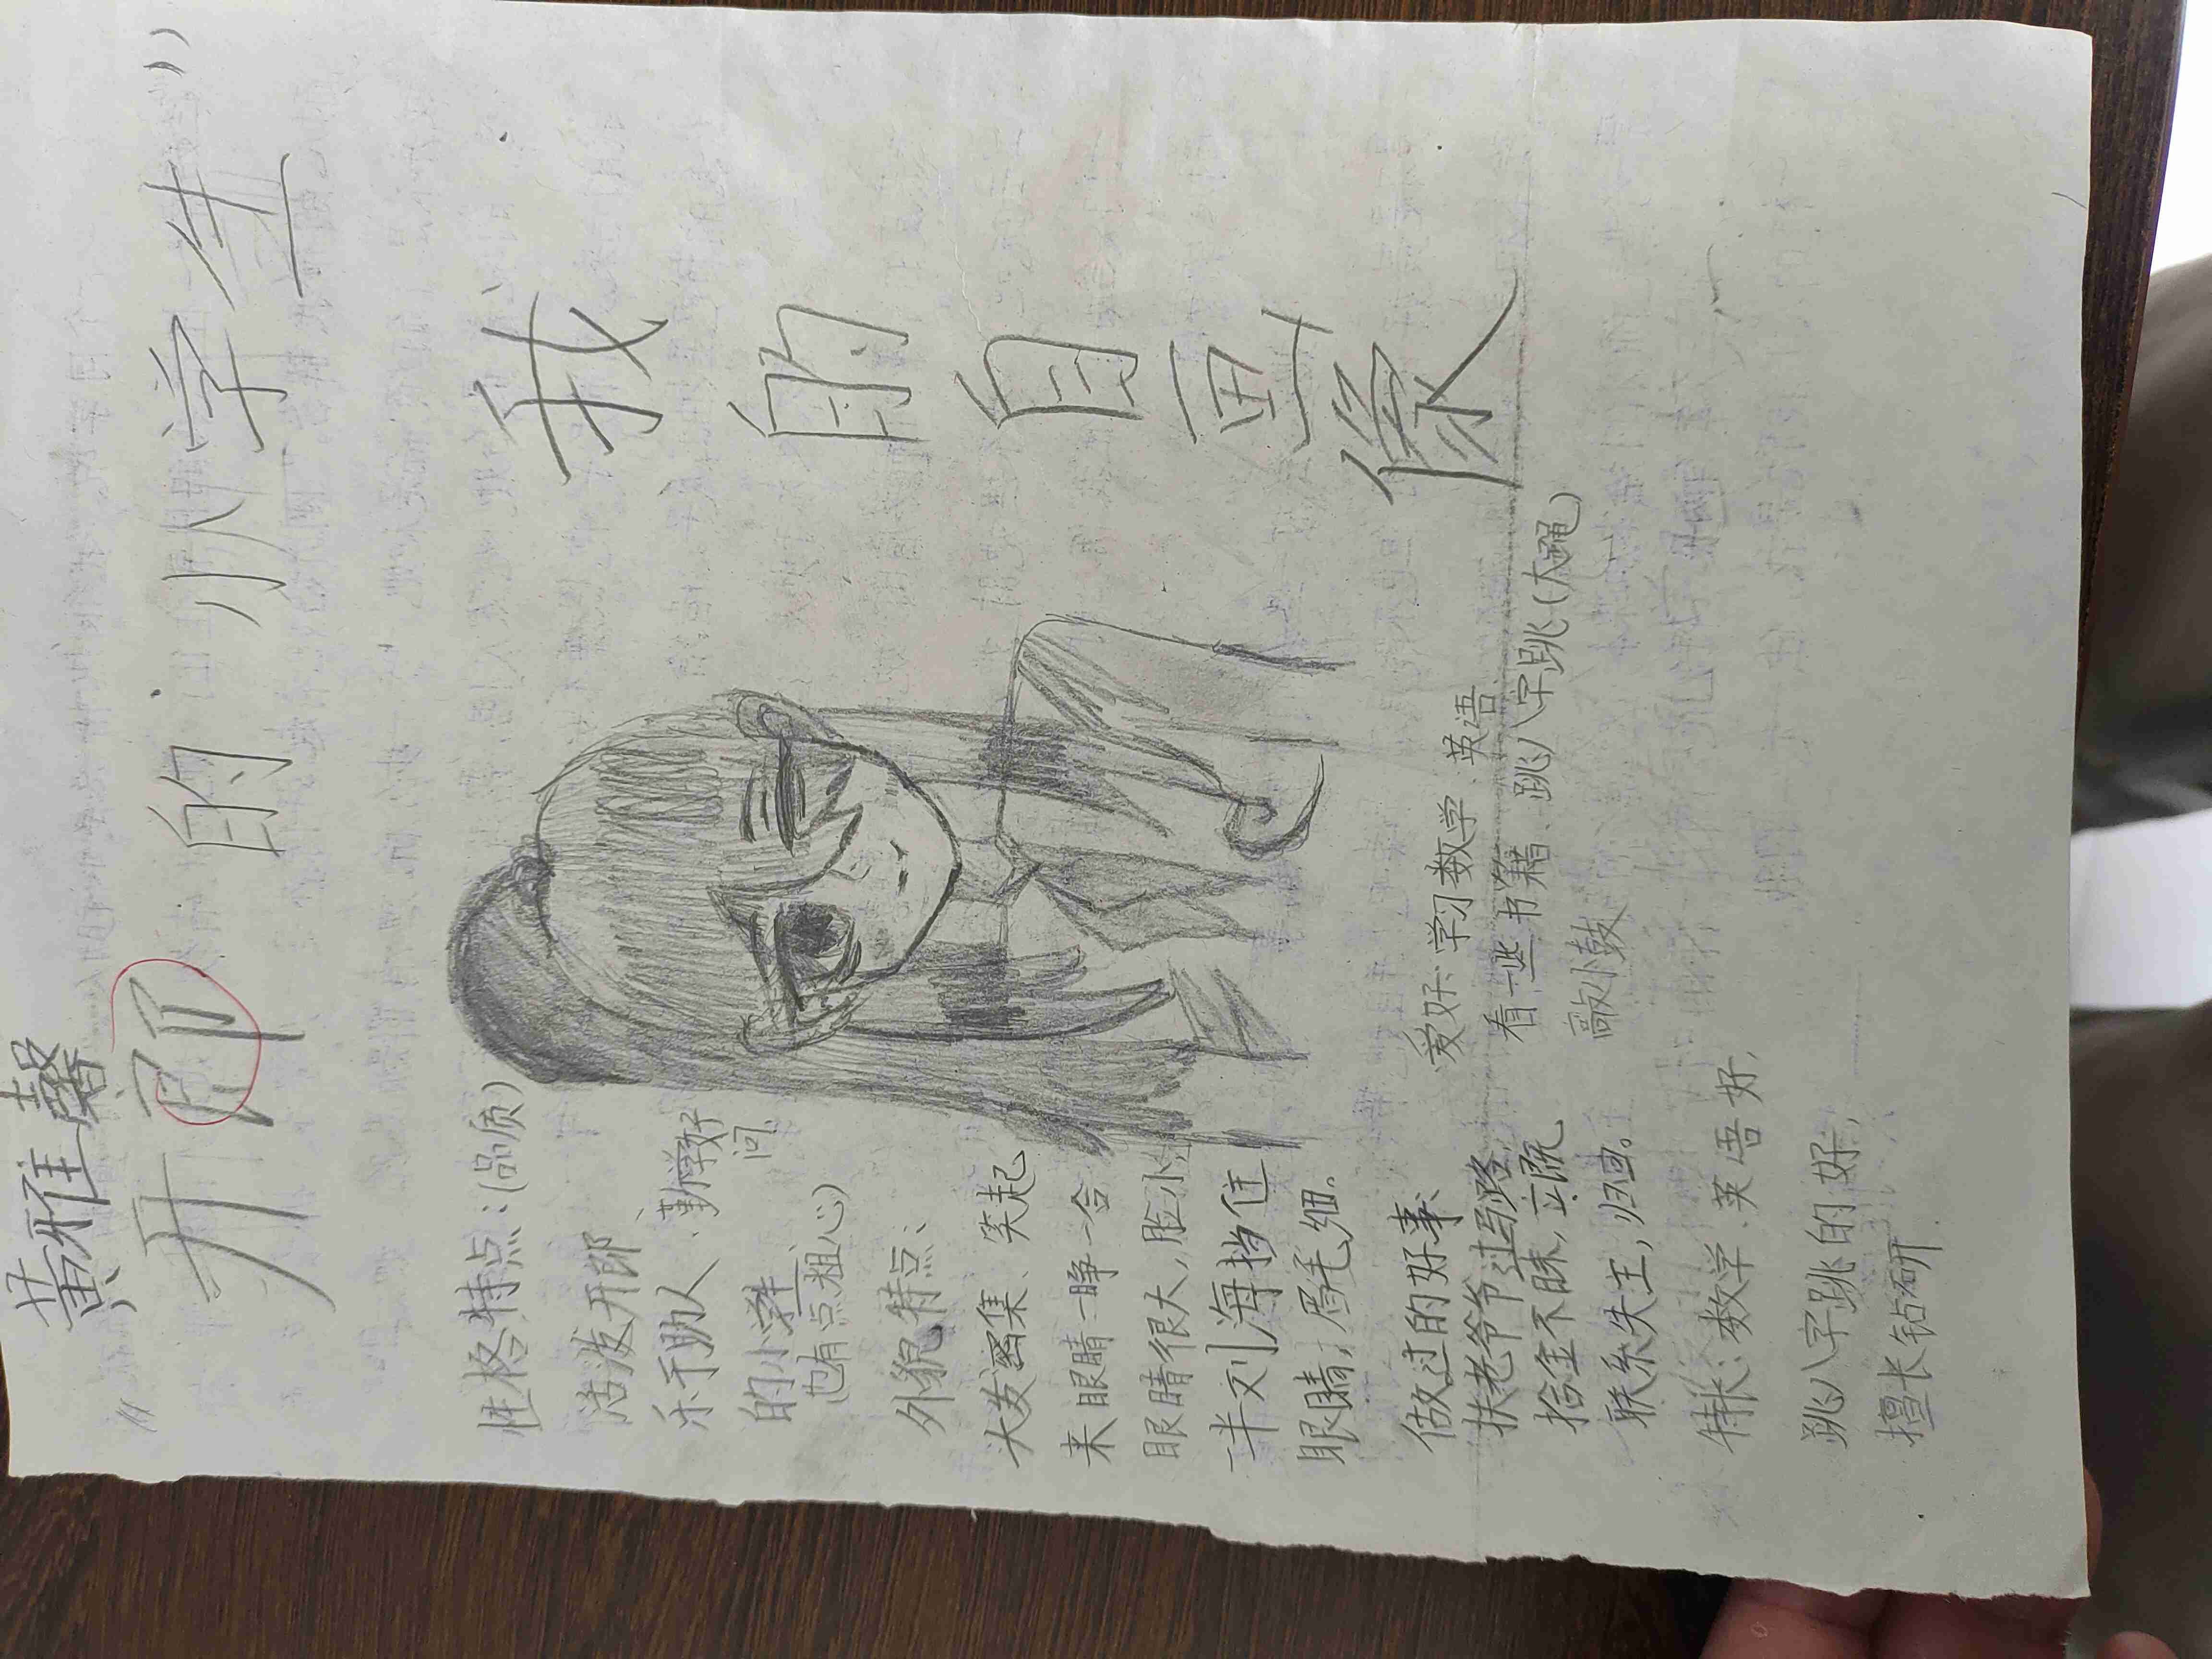 黄雅馨
“开郎的小学生”
我的自画像
性格特点:(品质)
活泼开郎、
乐于助人、勤学好问
的小学生
(也有点粗心)
外貌特点:
头发密集、笑起
来眼睛一睁一合
眼睛很大,脸小
一半刘海挡住
眼睛,眉毛细。
做过的好事:
扶老爷爷过马路,
拾金不昧,立既
联系失主,归还。
特长:数学、英语好,
跳八字跳的好,
擅长钻研.
爱好:学习数学、英语、
看一些书籍、跳八字跳(大绳)
敲小鼓